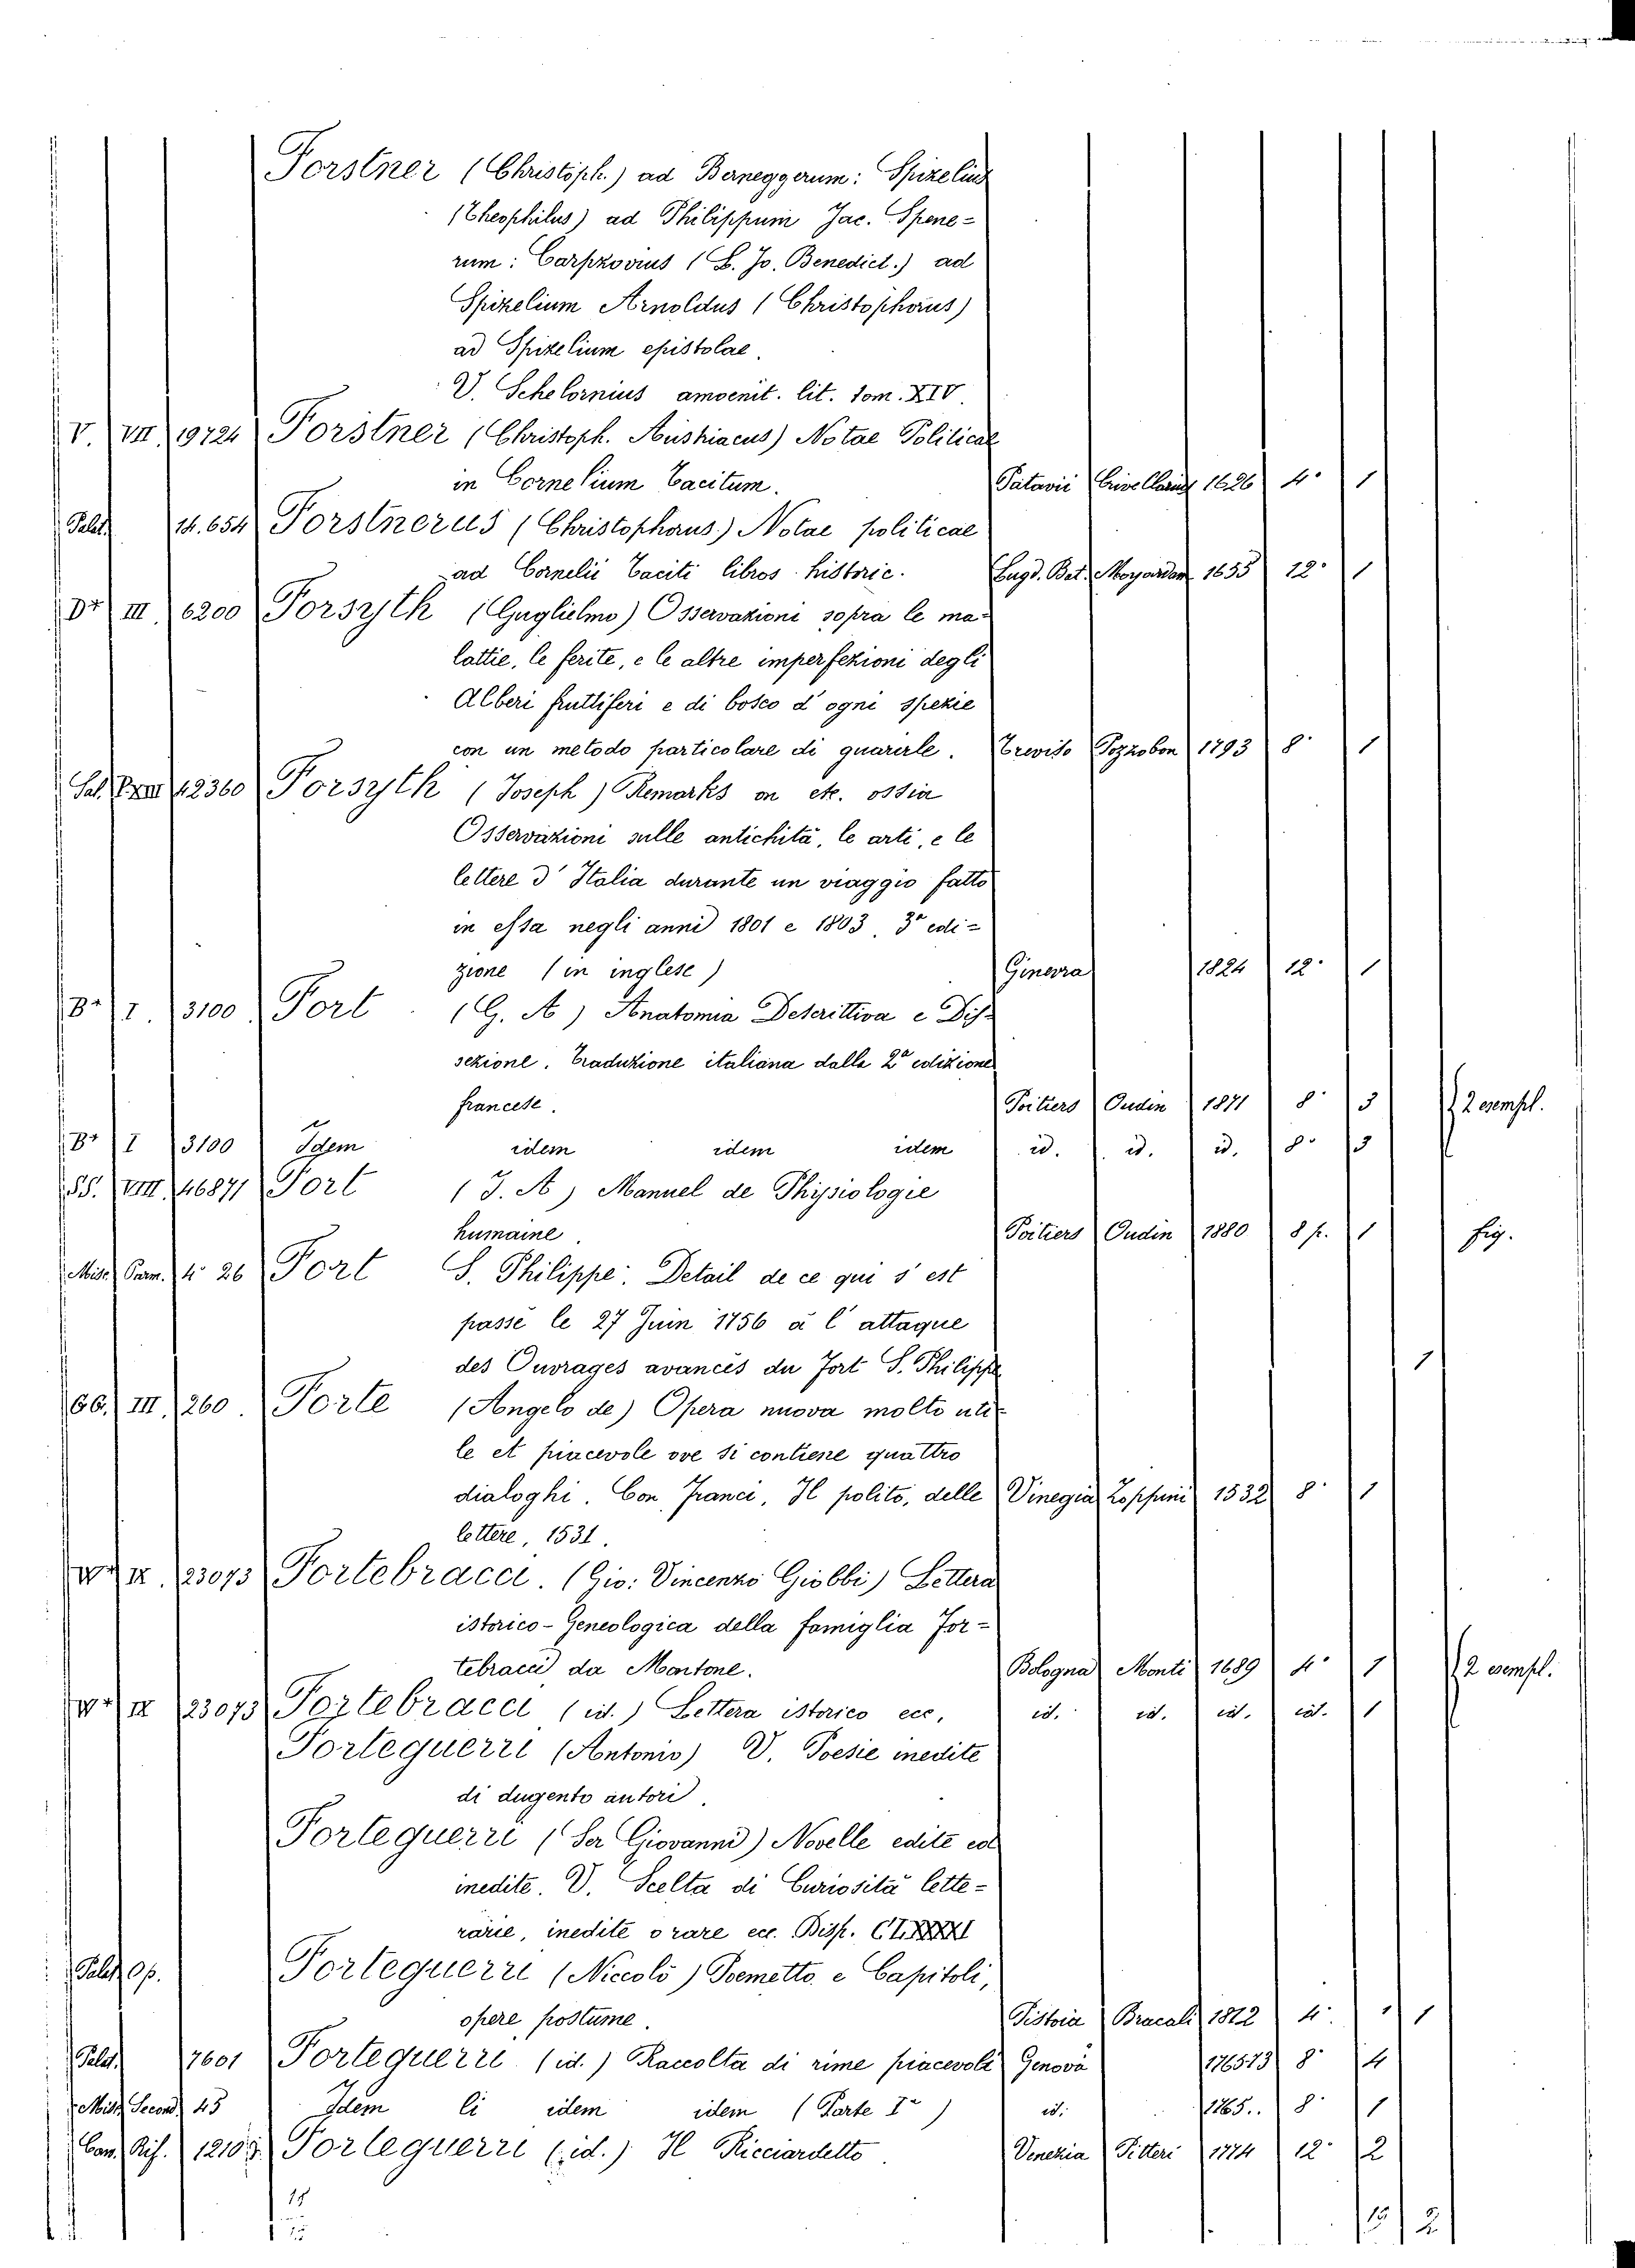 Forstner (Christoph.) ad Berneggerum: Spizelius
(Theophilus) ad Philippum Jac. Spene-
rum: Carpzovius (S. Jo. Benedict.) ad
Spizelium Arnoldus (Christophorus)
ad Spizelium epistolae.
V. Schelornius amoenit. lit. tom. XIV.
V. VII 19724 Forstner (Christoph. Austriacus) Notae Politicae
in Cornelium Tacitum. Patavii Crivellarius 1626 4° 1
Palat. 14.654 Forstnerus (Christophorus) Notae politicae
ad Cornelii Taciti libros historic. Lugd. Bat. Moyardan 1655 12° 1
D+ III 6200 Forsyth (Guglielmo) Osservazioni sopra le ma-
lattie, le ferite, e le altre imperfezioni degli
Alberi fruttiferi e di bosco d'ogni spezie
con un metodo particolare di guarirle. Treviso Pozzobon 1793 8° 1
Sal. 42360 Forsyth (Joseph) Remarks on etc. ossia
Osservazioni sulle antichità, le arti, e le
lettere d'Italia durante un viaggio fatto
in essa negli anni 1801 e 1803. 3a edi-
zione (in inglese) Ginevra 1824 12° 1
B+ I. 3100 Fort (G. A) Anatomia Descrittiva e Dis-
sezione. Traduzione italiana dalla 2a edizione
francese. Poitiers Oudin 1871 8° 3 2 esempl.
B+ I 3100 Idem idem idem idem id. id. id. 8° 3
SS. VIII. 46871 Fort (J. A) Manuel de Physiologie
humaine. Poitiers Oudin 1880 8 p. 1 fig.
Misc. Parm. 4° 26 Fort S. Philippe. Detail de ce qui s'est
passé le 27 Juin 1756 à l'attaque
des Ouvrages avancés du Fort S. Philippe 1
GG. III. 260. Forte (Angelo de) Opera nuova molto uti-
le et piacevole ove si contiene quattro
dialoghi. Con Franci, Il polito, delle Vinegia Zoppini 1532 8° 1
lettere, 1531.
W+ IX. 23073 Fortebracci. (Gio: Vincenzo Giobbi) Lettera
istorico-Geneologica della famiglia For-
tebracci da Montone. Bologna Monti 1689 4° 1 2 esempl.
W+ IX 23073 Fortebracci (id.) Lettera istorico ecc, id. id. id. id. 1
Forteguerri (Antonio) V. Poesie inedite
di dugento autori.
Forteguerri (Ser Giovanni) Novelle edite ed
inedite. V. Scelta di Curiosità lette-
rarie, inedite o rare ecc. Disp.
Palat. Op. Forteguerri (Niccolò) Poemetto e Capitoli,
opere postume. Pistoia Bracali 1812 4° 1 1
Palat. 7601 Forteguerri (id.) Raccolta di rime piacevoli Genova 8° 4
Misc. Second. 45 Idem li idem idem (Parte Ia) id. 1765.. 8° 1
Com. Rif. Forteguerri (id.) Il Ricciardetto. Venezia Pitteri 1774 12° 2